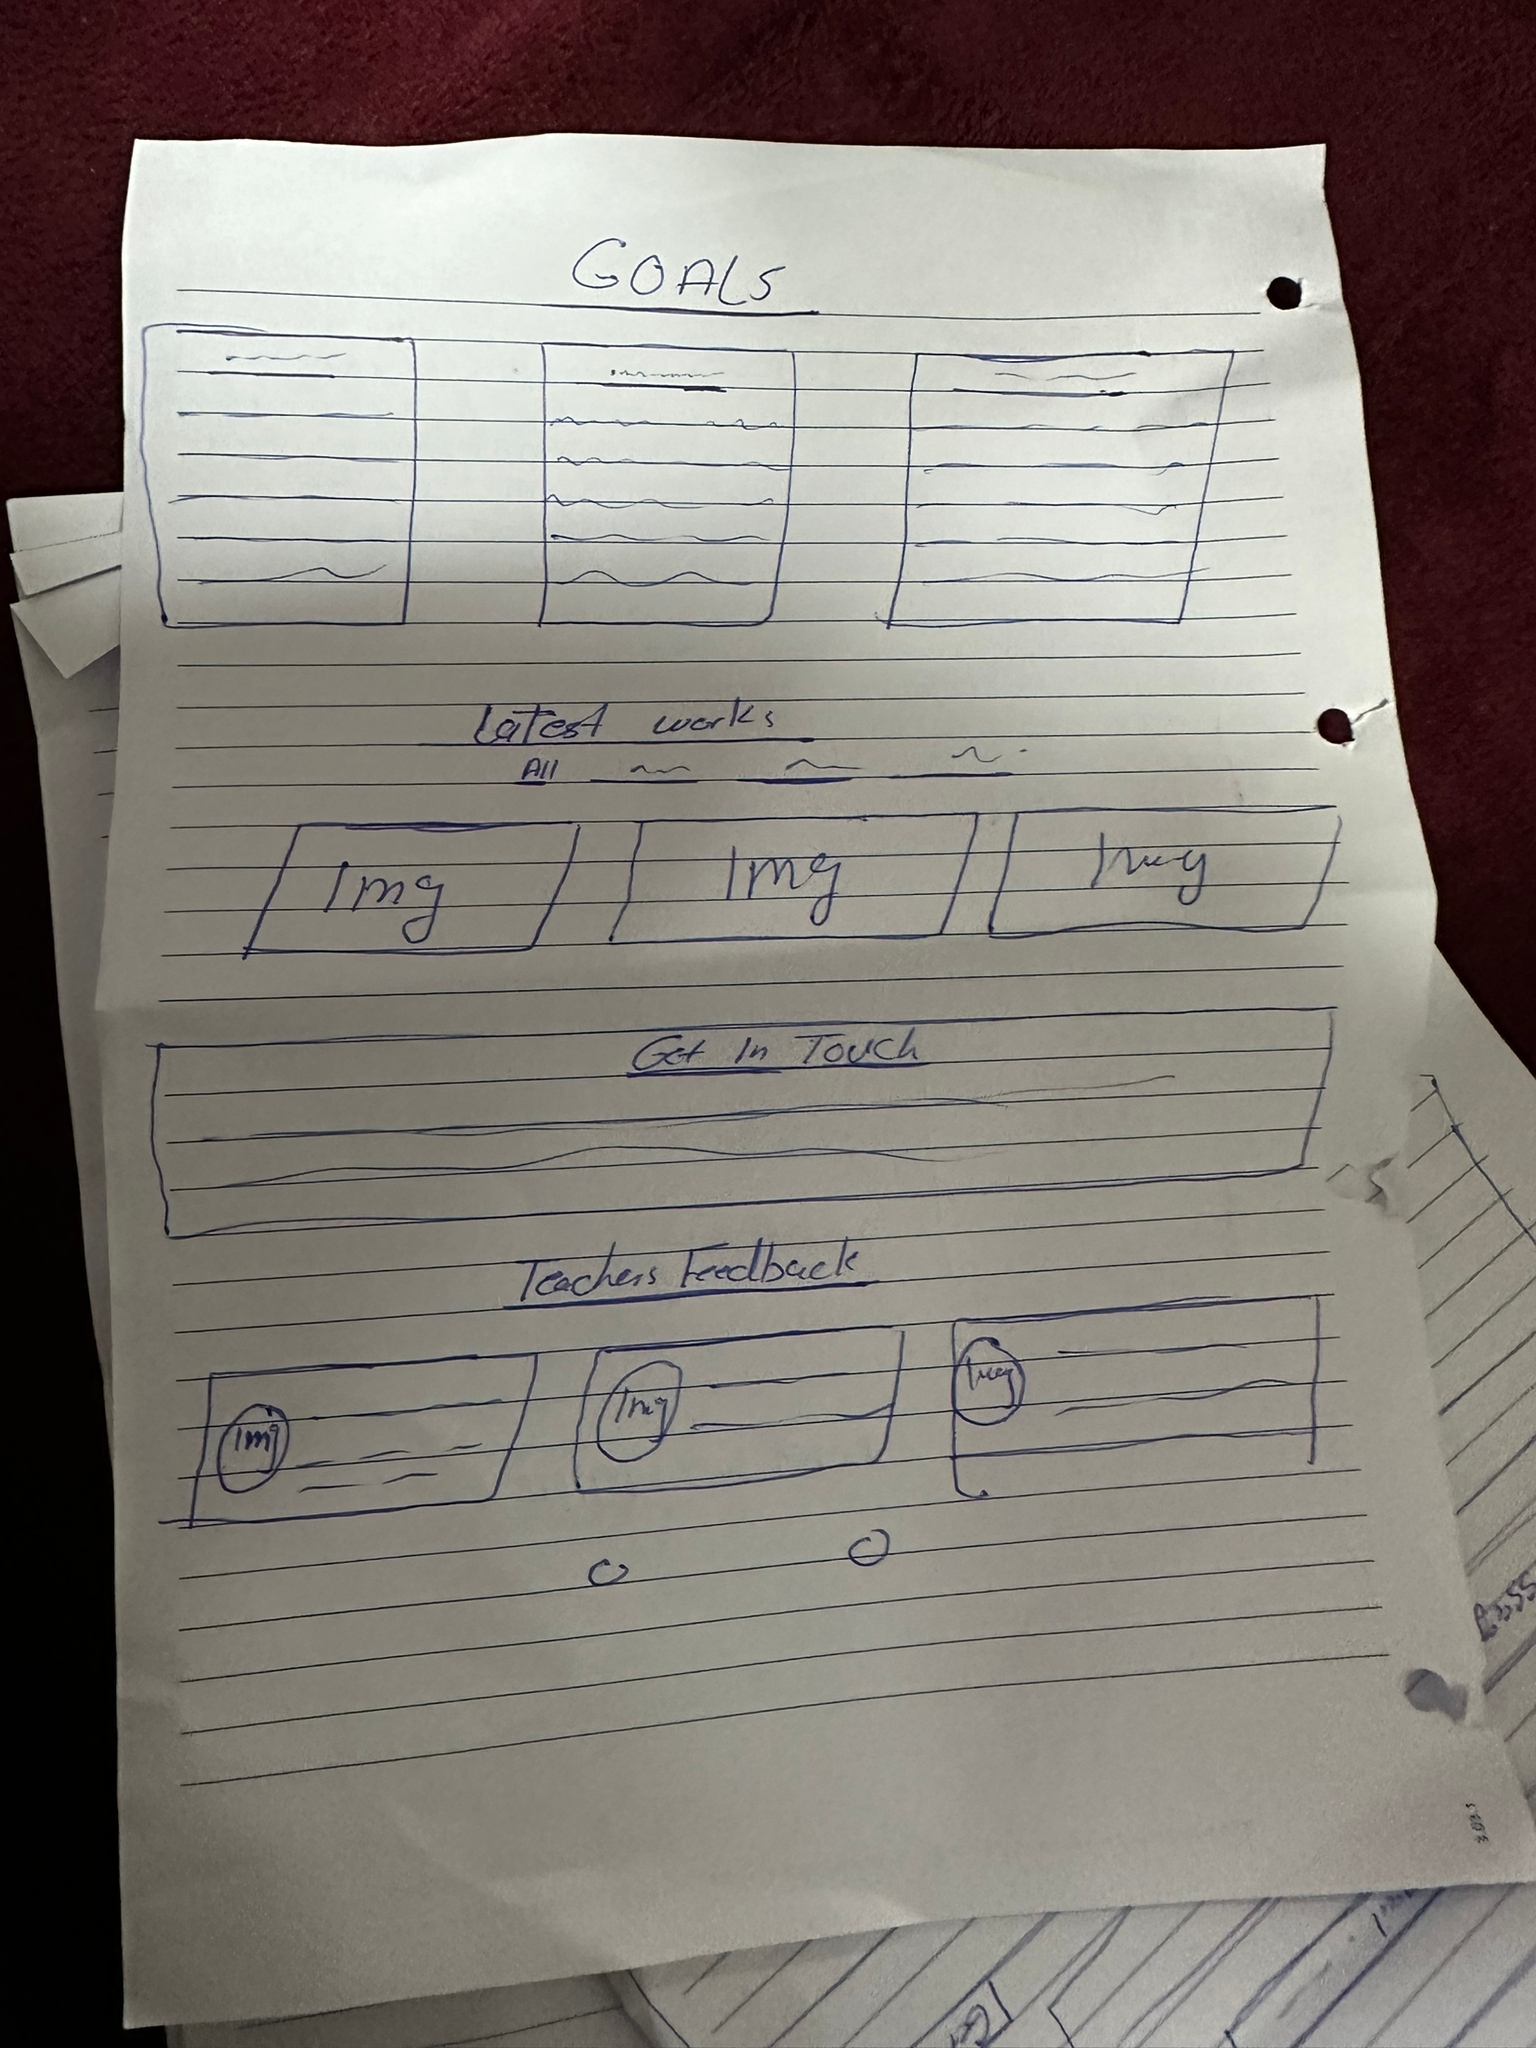 GOALS
Latest works
All
Img Img Img
Get In Touch
Teachers Feedback
Img Img Img